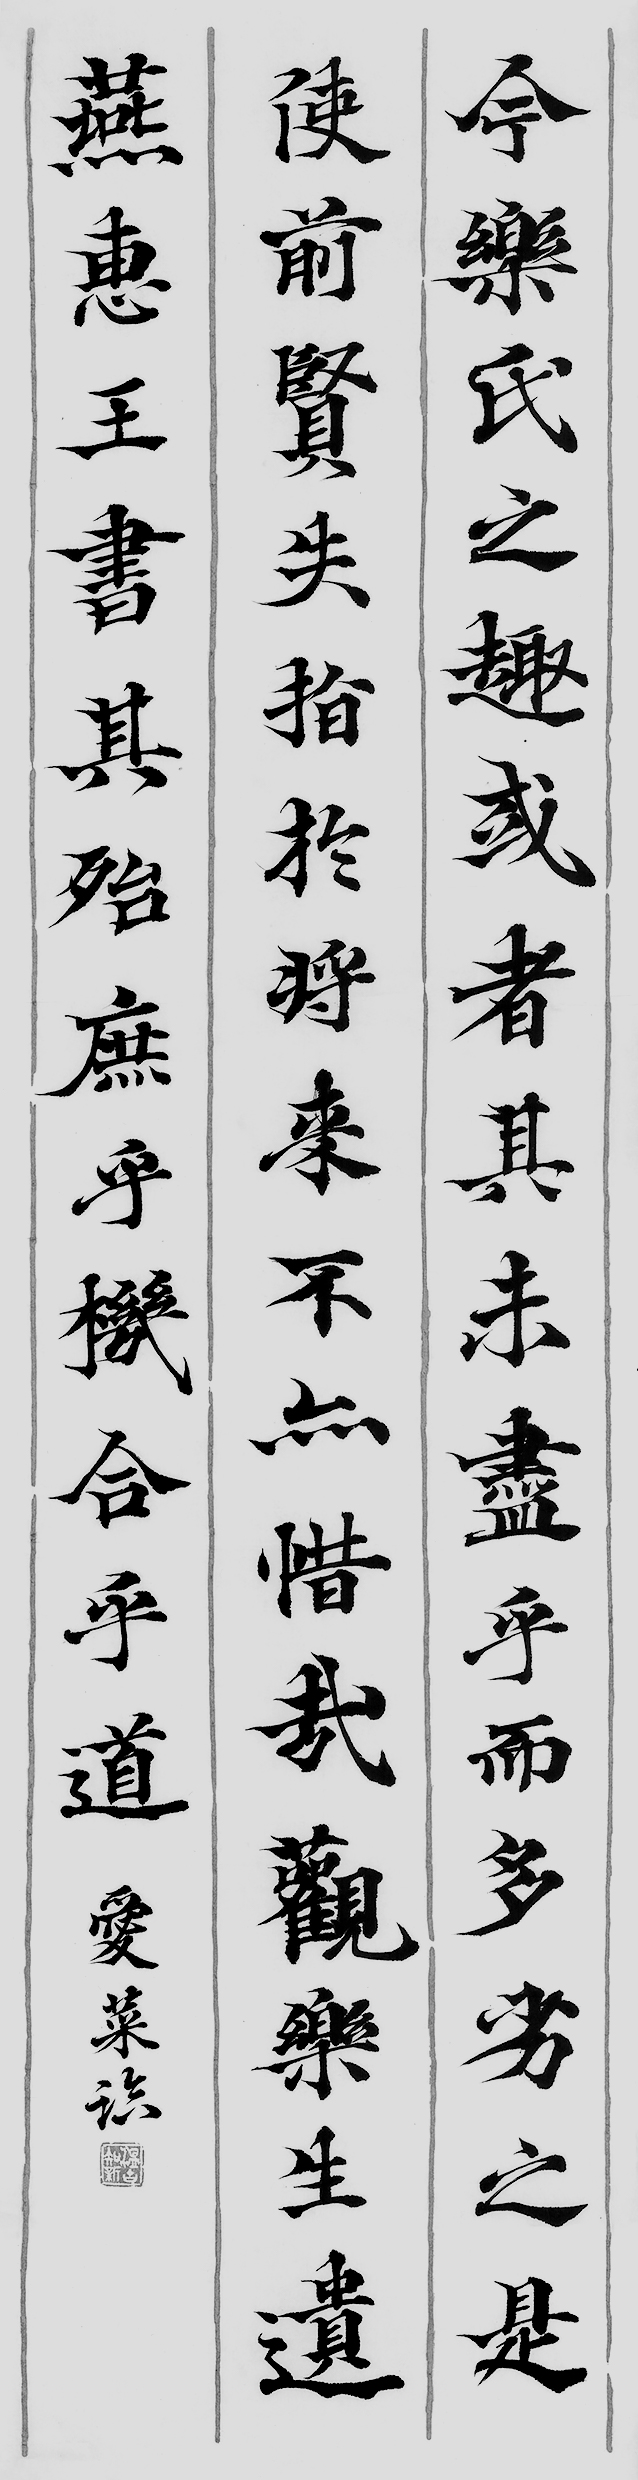 今樂氏之趣或者其未盡乎而多劣之是
使前賢失指於將來不亦惜哉觀樂生遺
燕惠王書其殆庶乎機合乎道
愛菜臨